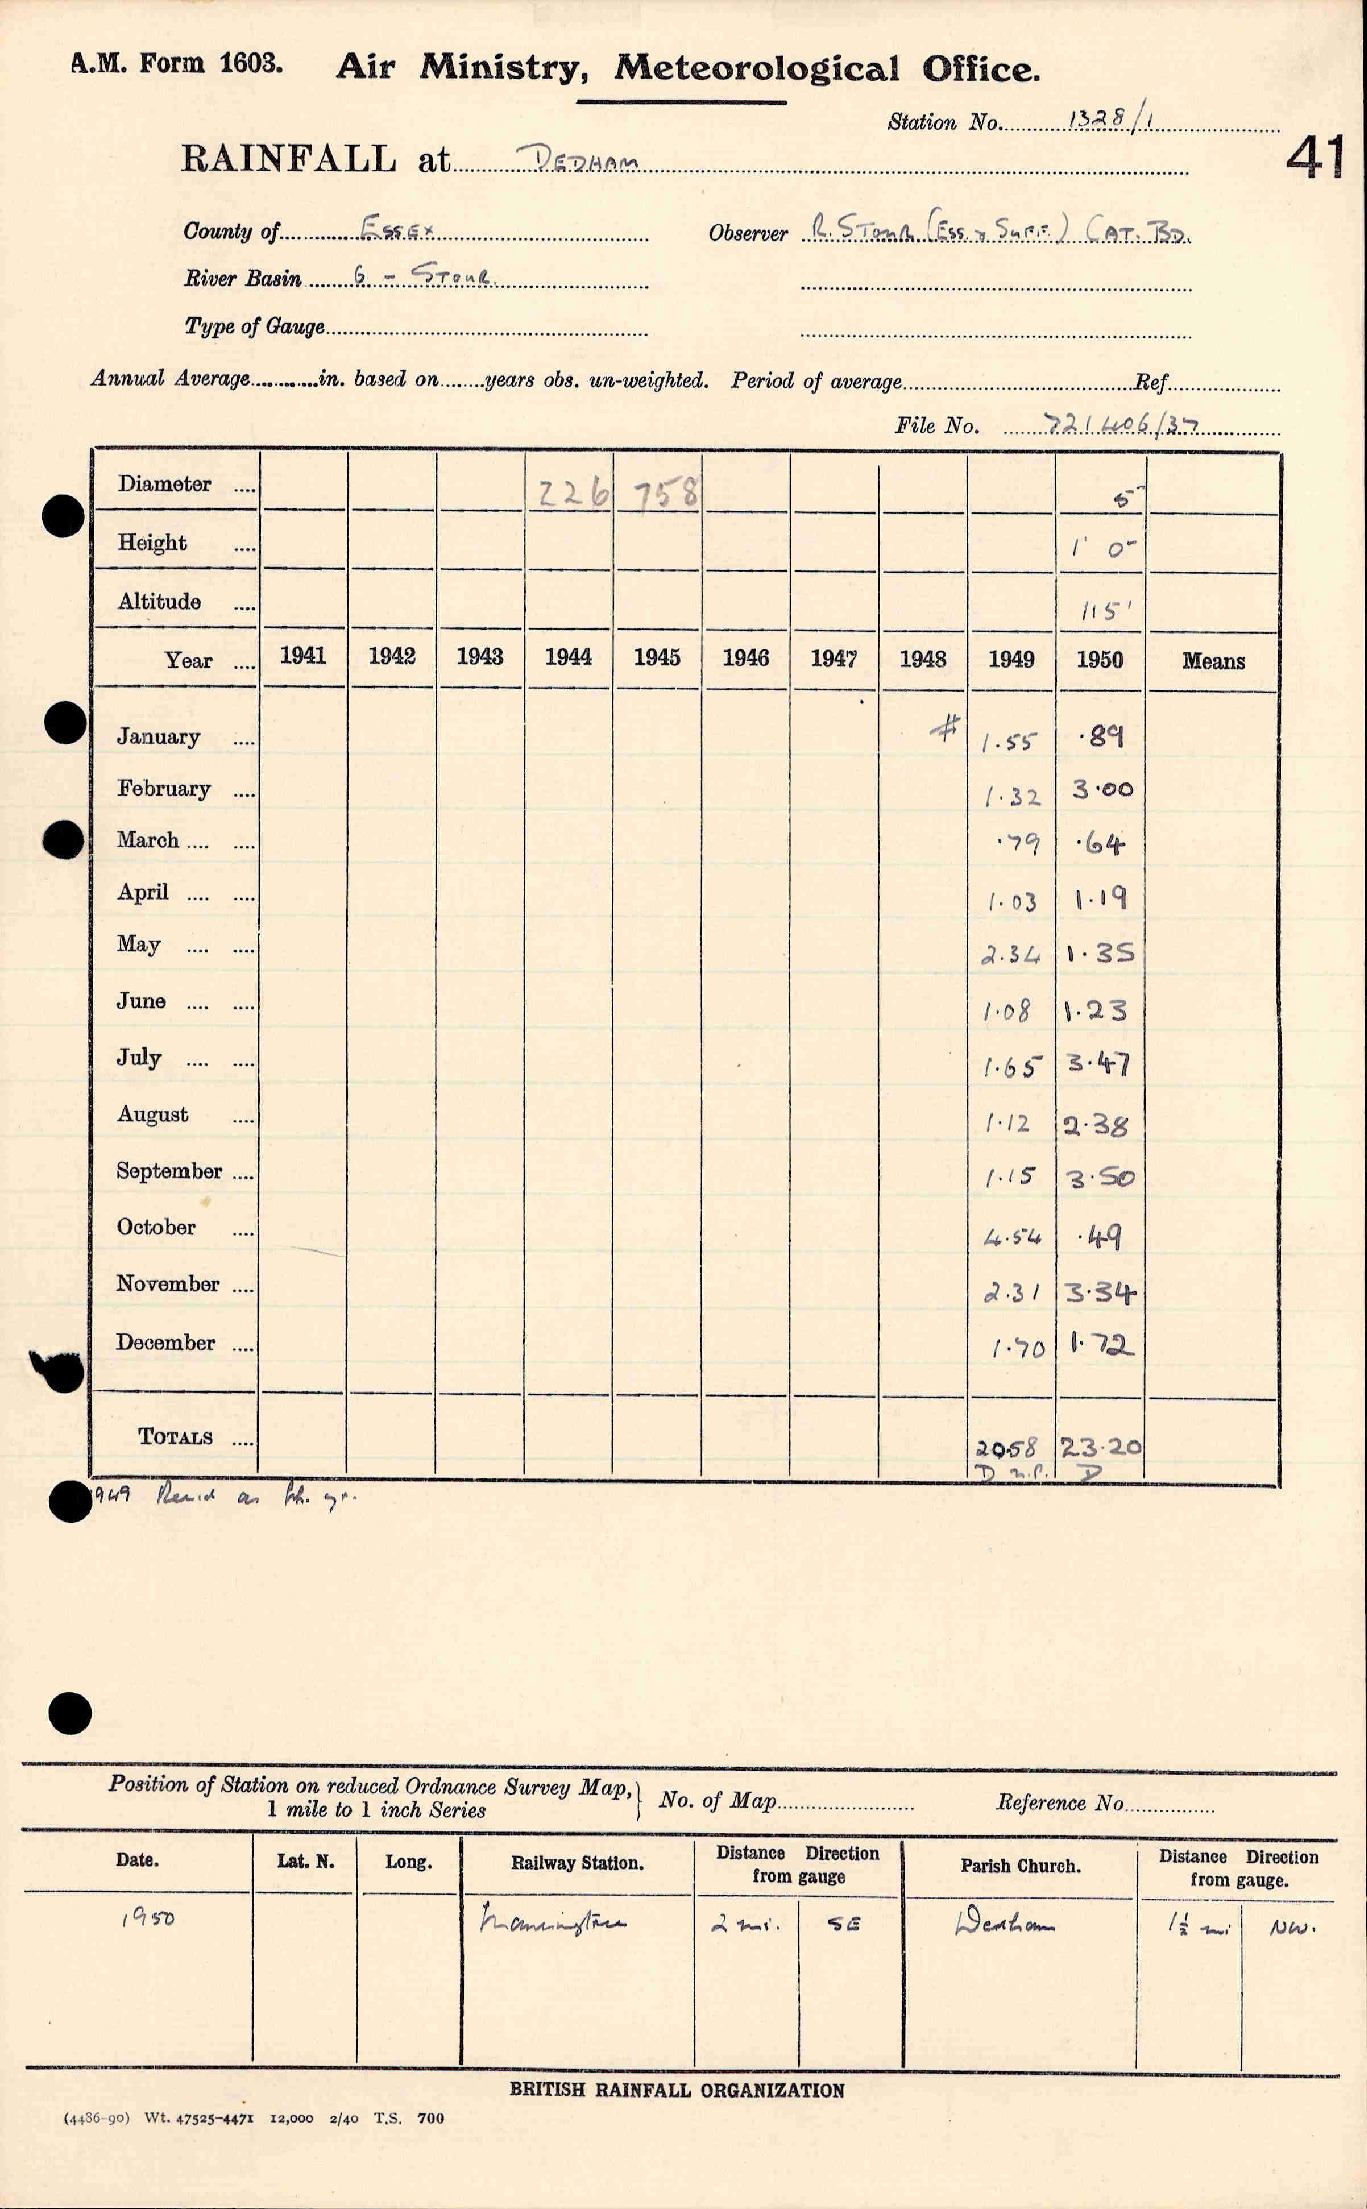 A.M. Form 1603. Air Ministry, Meteorological Office.
Station No. 1328/1
41
RAINFALL at DEDHAM
County of ESSEX Observer R. STOUR (ESS. & SUFF.) CAT. BD.
River Basin 6 - STOUR
Type of Gauge
Annual Average in. based on years obs. un-weighted. Period of average Ref
File No. 721406/37
Diameter 226 758 5
Height 1' 0"
Altitude 115'
Year 1941 1942 1943 1944 1945 1946 1947 1948 1949 1950 Means
January # 1.55 .89
February 1.32 3.00
March .79 .64
April 1.03 1.19
May 2.34 1.35
June 1.08 1.23
July 1.65 3.47
August 1.12 2.38
September 1.15 3.50
October 4.54 .49
November 2.31 3.34
December 1.70 1.72
TOTALS 20.58 23.20
D n.p. D
1949 as yr.
Position of Station on reduced Ordnance Survey Map, } No. of Map Reference No
1 mile to 1 inch Series
Date. Lat. N. Long. Railway Station. Distance Direction from gauge Parish Church. Distance Direction from gauge.
1950 Manningtree 2 mi. SE Dedham 1½ mi NW.
BRITISH RAINFALL ORGANIZATION
(4486-90) Wt. 47525-4471 12,000 2/40 T.S. 700